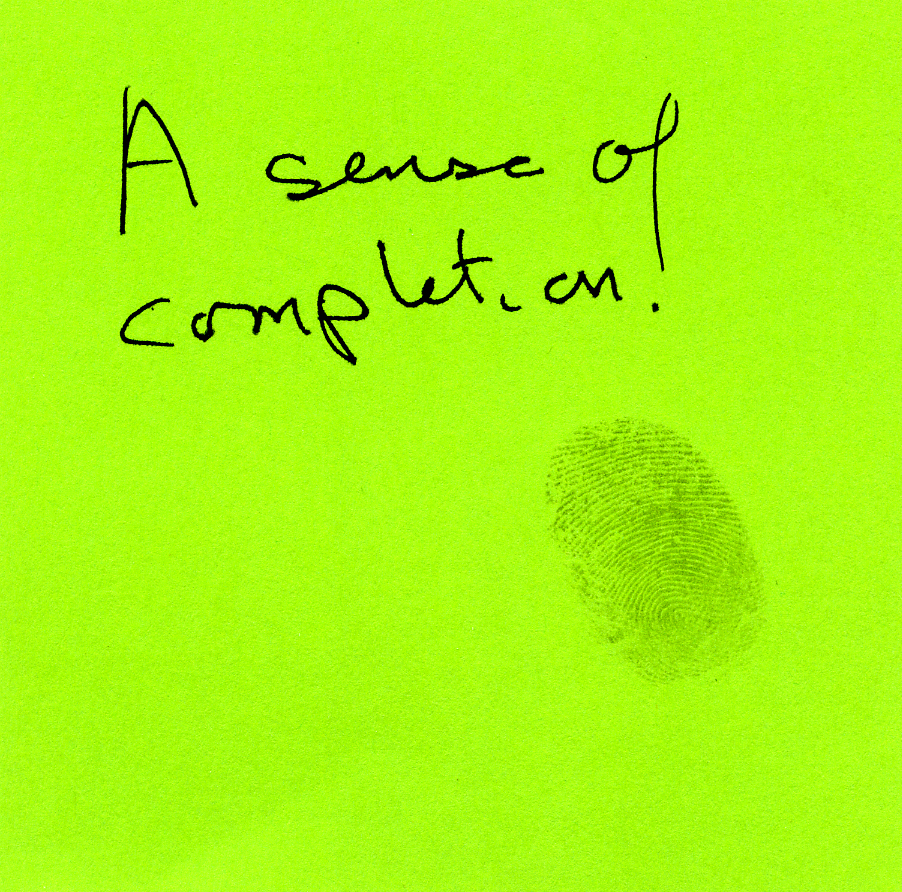 A sense of
completion.